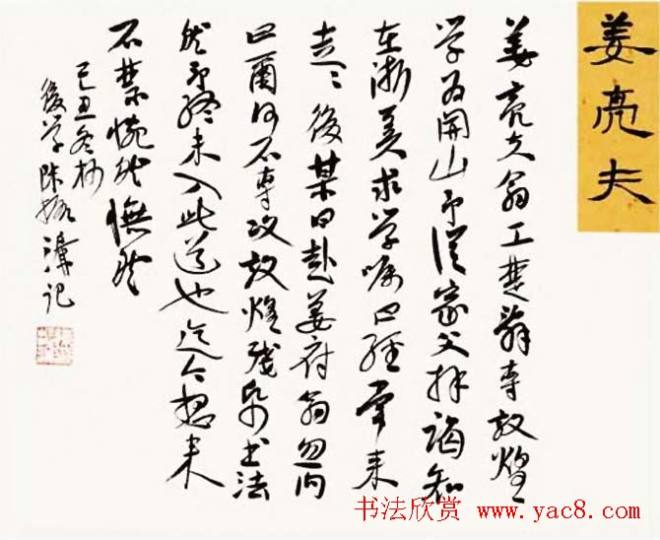 姜亮夫
姜亮夫翁工楚辞专敦煌
学为开山予从家父拜谒知
在浙美求学嘱曰经常来
走走后某日赴姜府翁忽问
曰尔何不专攻敦煌残纸书法
然予终未入此道也迄今想来
不禁惋然怃然
己丑冬杪
后学陈振濂记
书法欣赏 www.yac8.com